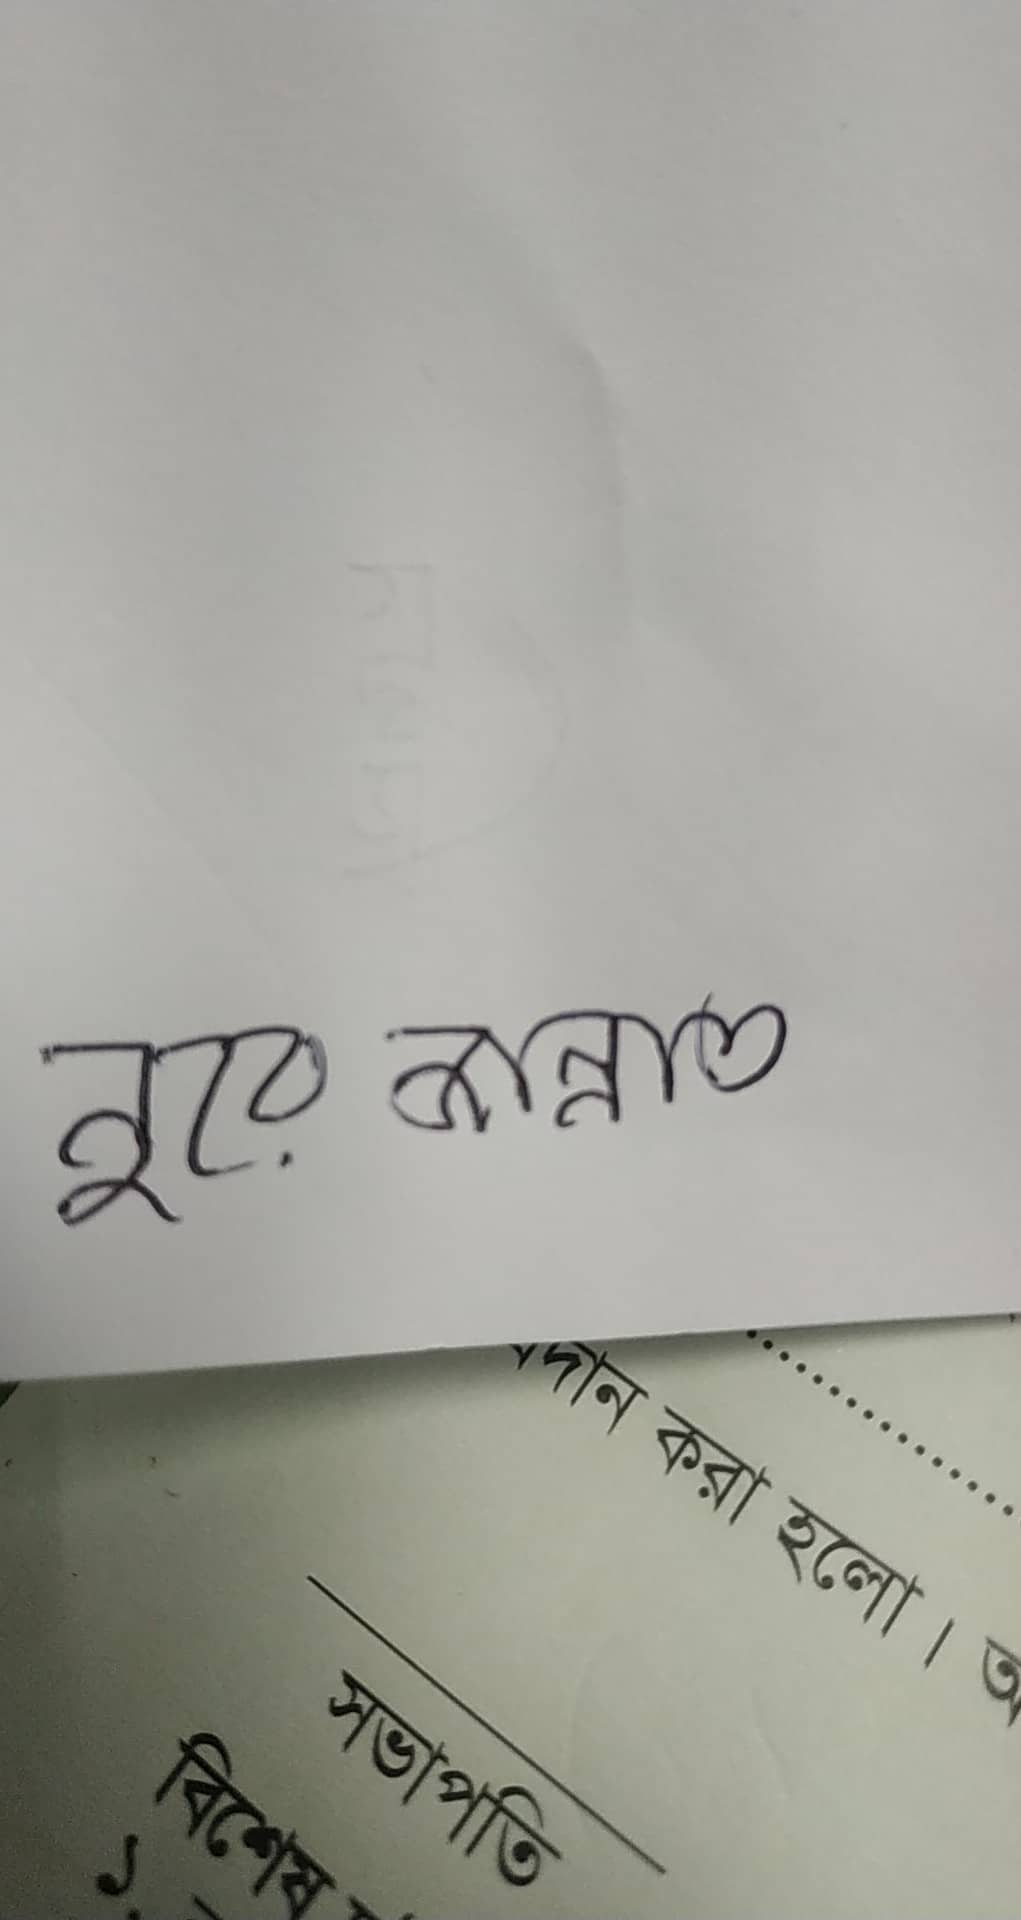 নুরে জান্নাত
দান করা হলো। অ
সভাপতি
বিশেষ